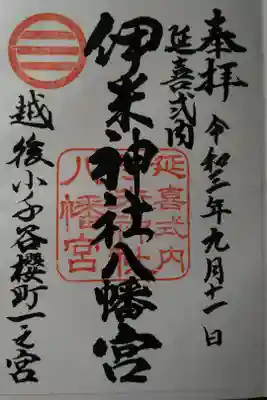 奉拝
令和三年九月十一日
延喜式内
伊米神社八幡宮
延喜式内
八幡宮
越後小千谷櫻町一之宮